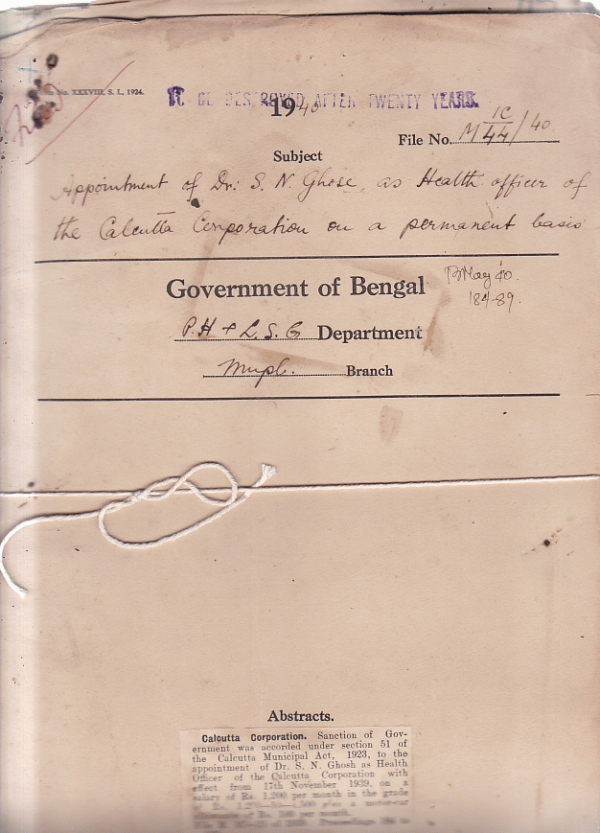 No. XXXVIII, S. I., 1924.
TO BE DESTROYED AFTER TWENTY YEARS.
1940
File No. M 1C/44/40
Subject
Appointment of Dr. S. N. Ghose, as Health officer of
the Calcutta Corporation on a permanent basis
Government of Bengal
B May 40.
184-89.
P.H & L.S.G Department
Mupl. Branch
Abstracts.
Calcutta Corporation. Sanction of Gov-
ernment was accorded under section 51 of
the Calcutta Municipal Act, 1923, to the
appointment of Dr. S. N. Ghosh as Health
Officer of the Calcutta Corporation with
effect from 17th November 1939, on a
salary of Rs. 1,200 per month in the grade
plus a motor-car
allowance of Rs. 100 per month.